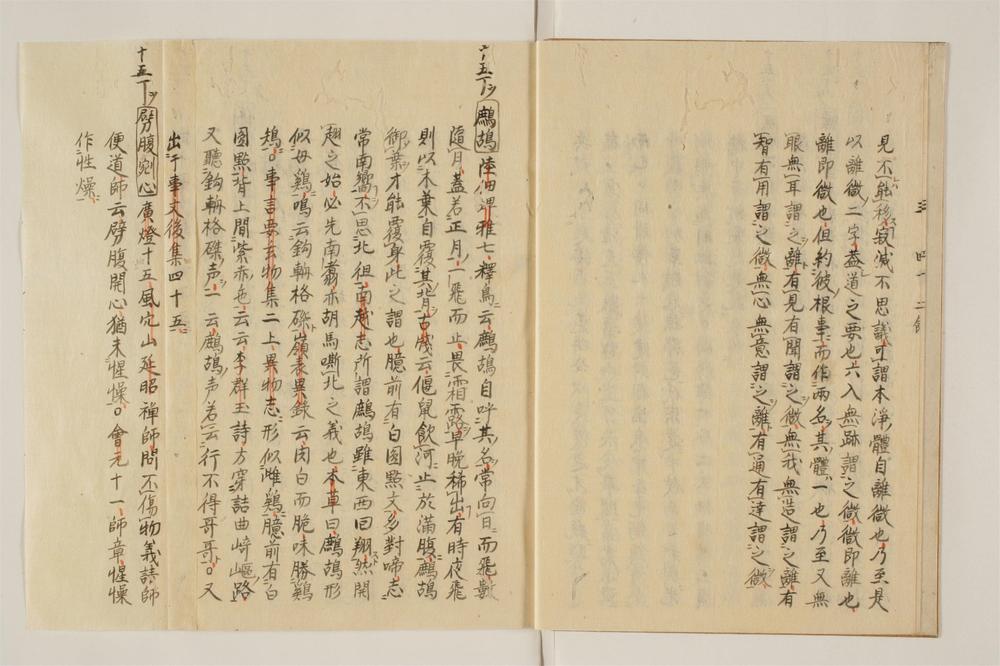 見不能移寂滅不思議可謂本淨體自離微也乃至是
以離微二字蓋道之要也六入無跡謂之微微即離也
離即微也但約彼根事而作兩名其體一也乃至又無
眼無耳謂之離有見有聞謂之微無我無造謂之離有
智有用謂之微無心無意謂之離有通有達謂之微
十五丁 鷓鴣 陸佃埤雅七釋鳥云鷓鴣自呼其名常向日而飛數
隨月蓋若正月一飛而止畏霜露早晚稀出有時夜飛
則以木葉自覆其背古牋云偃鼠飲河止於滿腹鷓鴣
御葉才能覆身此之謂也臆前有白圓點文多對啼志
常南嚮不思北徂南越志所謂鷓鴣雖東西回翔然開
翅之始必先南翥亦胡馬嘶北之義也本草曰鷓鴣形
似母鷄鳴云鈎輈格磔嶺表異錄云肉白而脆味勝鷄
鴙事言要玄物集二上異物志形似雌鷄臆前有白
圓點背上間紫赤也云云李群玉詩方穿詰曲崎嶇路
又聽鈎輈格磔声一云鷓鴣声若云行不得哥哥又
出于事文後集四十五
十五丁 劈腹剜心 廣燈十五風穴山延昭禪師問不傷物義請師
便道師云劈腹開心猶未惺懆會元十一師章惺懆
作性燥